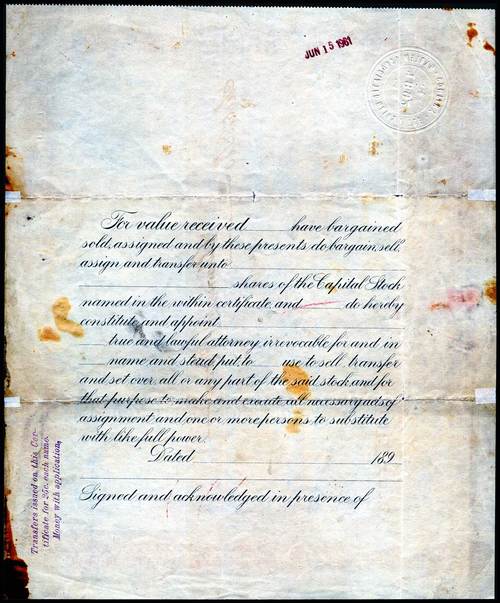 JUN 15 1961
For value received ____ have bargained
sold, assigned and by these presents do bargain, sell,
assign and transfer unto ____
____ shares of the Capital Stock
named in the within certificate, and ____ do hereby
constitute and appoint ____
____ true and lawful attorney irrevocable for and in
____ name and stead put, to ____ use to sell, transfer
and set over all or any part of the said stock and for
that purpose to make and execute all necessary acts of
assignment and one or more persons to substitute
with like full power.
Dated ____ 189__
Signed and acknowledged in presence of
Transfers issued on this Cer-
tificate for 25c. each name.
Money with application.